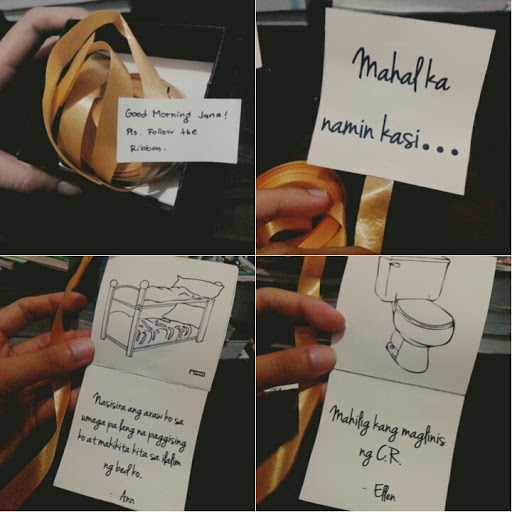 Good Morning Jana!
Pls. Follow the
Ribbon.
Mahal ka
namin kasi...
Nasisira ang araw ko sa
umaga pa lang na paggising
ko at makikita kita sa ilalim
ng bed ko.
- Ann
Mahilig kang maglinis
ng C.R.
- Ellen